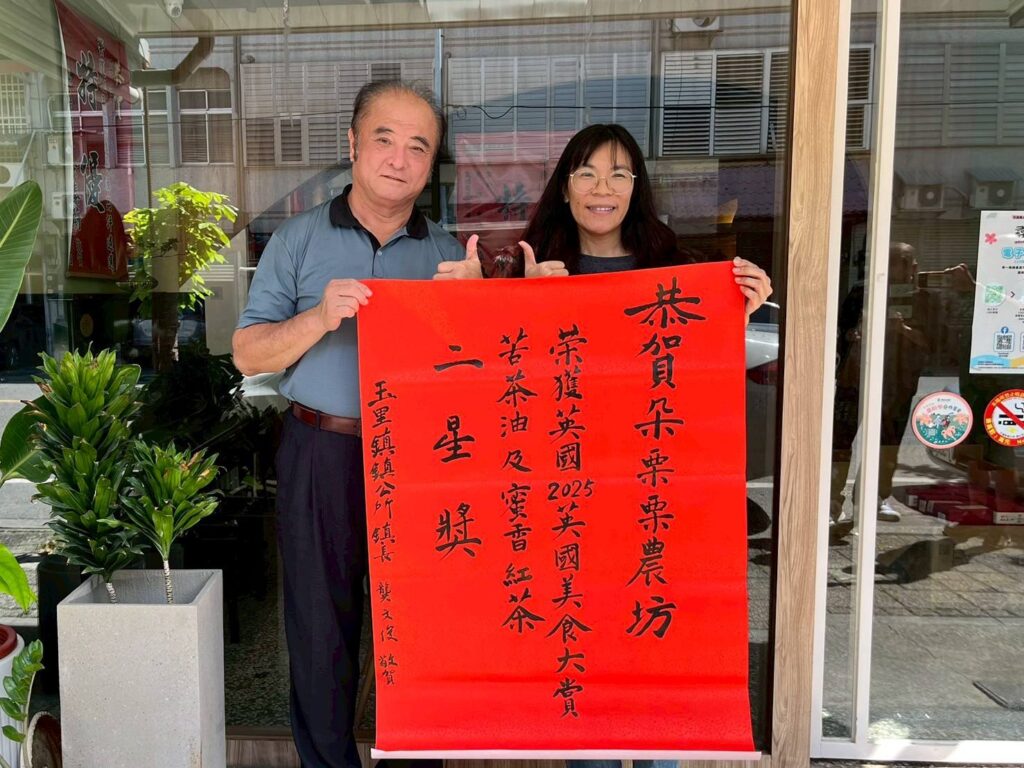 恭賀朵栗栗農坊
榮獲英國2025英國美食大賞
苦茶油及蜜香紅茶
二星獎
玉里鎮鎮公所鎮長 龔文俊 敬賀